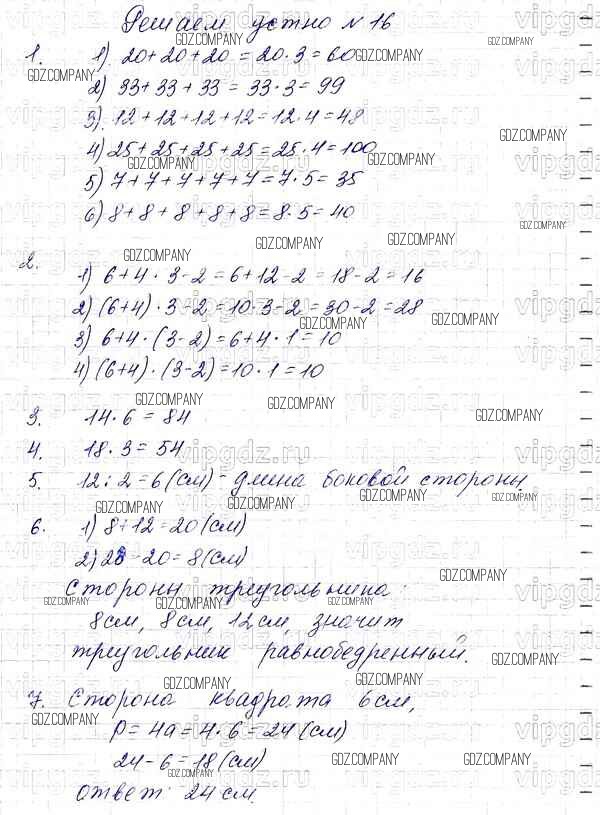 Решаем устно №16
1. 1) 20+20+20=20·3=60
2) 33+33+33=33·3=99
3) 12+12+12+12=12·4=48
4) 25+25+25+25=25·4=100
5) 7+7+7+7+7=7·5=35
6) 8+8+8+8+8=8·5=40
2. 1) 6+4·3-2=6+12-2=18-2=16
2) (6+4)·3-2=10·3-2=30-2=28
3) 6+4·(3-2)=6+4·1=10
4) (6+4)·(3-2)=10·1=10
3. 14·6=84
4. 18·3=54
5. 12:2=6(см)-длина боковой стороны
6. 1) 8+12=20(см)
2) 28-20=8(см)
Стороны треугольника:
8см, 8см, 12см, значит
треугольник равнобедренный.
7. Сторона квадрата 6см,
P=4a=4·6=24(см)
24-6=18(см)
Ответ: 24см.
GDZ.COMPANY
vipgdz.ru